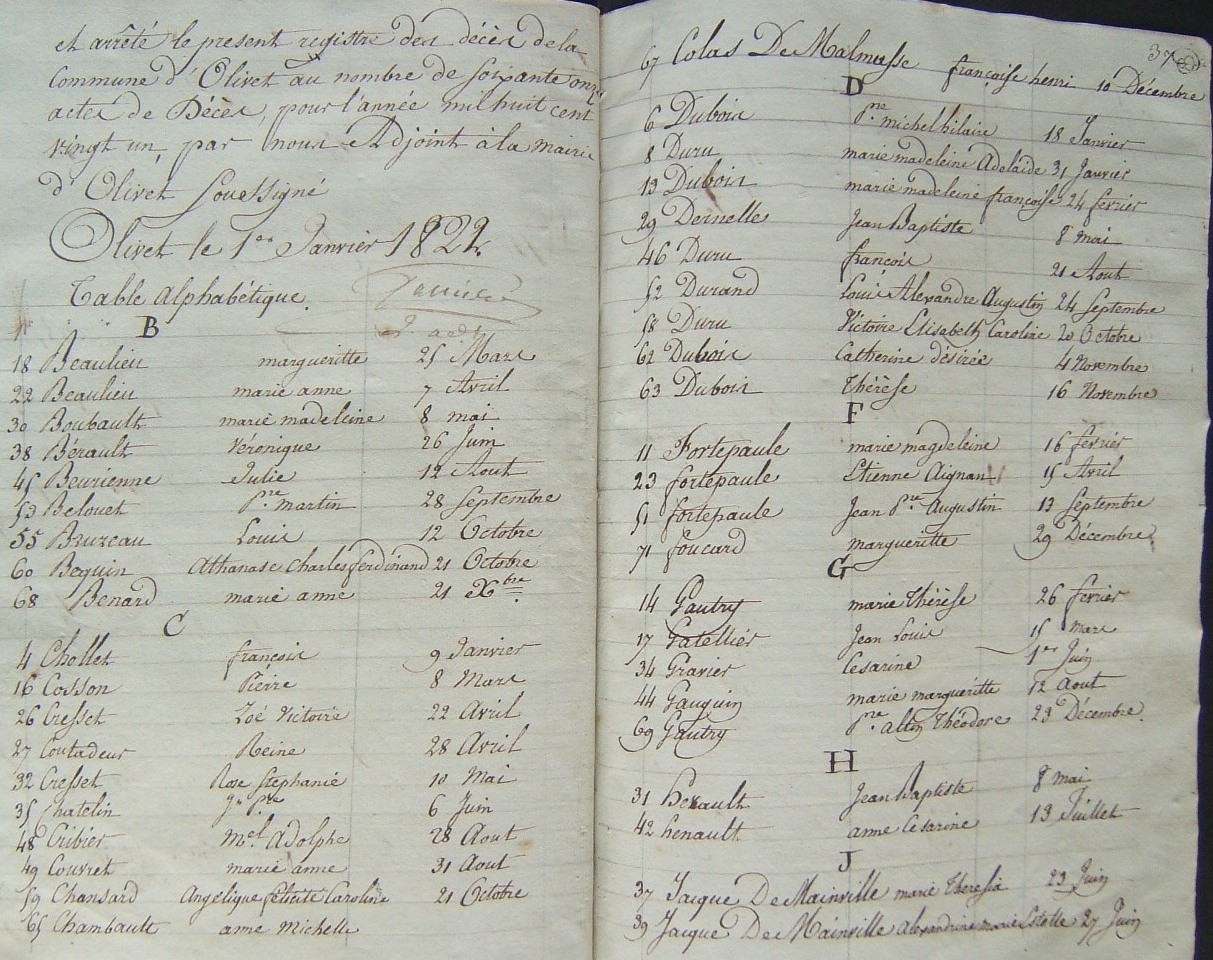 et arrêté le present registre des décès de la
Commune d'Olivet au nombre de Soixante onze
actes de Décès, pour l'année mil huit cent
vingt un, par nous Adjoint à la mairie
d'Olivet Soussigné
Olivet le 1er Janvier 1822.
Table Alphabétique.
B
18 Beaulieu margueritte 25 Mars
22 Beaulieu marie anne 7 Avril
30 Boubault marie madeleine 8 mai
38 Bérault Véronique 26 Juin
45 Beurienne Julie 12 Aout
53 Belouet Pre martin 28 Septembre
55 Bruzeau Louis 12 Octobre
60 Beguin Athanase Charles ferdinand 21 Octobre
68 Benard marie anne 21 Xbre
C
4 Chollet françois 9 Janvier
16 Cosson Pierre 8 Mars
26 Cresset Zoé Victoire 22 Avril
27 Coutadeur Reine 28 Avril
32 Cresset Rose Stephanie 10 Mai
35 Chatelin Jn Pre 6 Juin
48 Cribier Mel Adolphe 28 Aout
49 Couvret marie anne 31 Aout
59 Chansard Angelique félicité Caroline 21 Octobre
65 Chambault anne Michelle
37
67 Colas De Malmusse françoise henri 10 Décembre
D
6 Dubois Pre michel hilaire 18 Janvier
8 Duru marie madeleine Adelaide 31 Janvier
13 Dubois marie madeleine françoise 24 fevrier
29 Dernelle Jean Baptiste 8 mai
46 Duru françois 21 Aout
52 Durand Louis Alexandre Augustin 24 Septembre
58 Duru Victoire Elisabeth Caroline 20 Octobre
62 Dubois Catherine désirée 4 Novembre
63 Dubois Thérèse 16 Novembre
F
11 Fortepaule marie magdeleine 16 fevrier
23 fortepaule Etienne Aignan 15 Avril
51 fortepaule Jean Pre Augustin 13 Septembre
71 foucard margueritte 29 Décembre
G
14 Gautry marie Thérèse 26 fevrier
17 Gatellier Jean Louis 15 mars
34 Gravier Cesarine 1er Juin
44 Gauguin marie margueritte 12 Aout
69 Gautry Pre Théodore 23 Décembre.
H
31 herault Jean Baptiste 8 mai
42 henault anne Cesarine 13 Juillet
J
37 Jacque De Mainville marie Theresia 23 Juin
39 Jacque De Mainville alexandrine marie Estelle 27 Juin